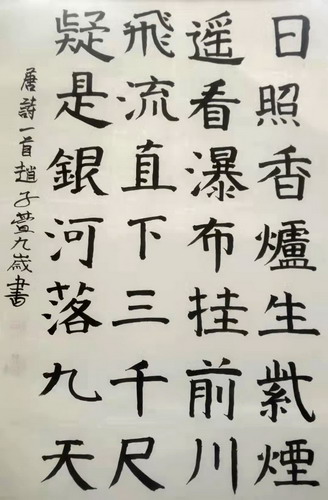 日照香爐生紫煙
遥看瀑布挂前川
飛流直下三千尺
疑是銀河落九天
唐詩一首趙子萱九歲書